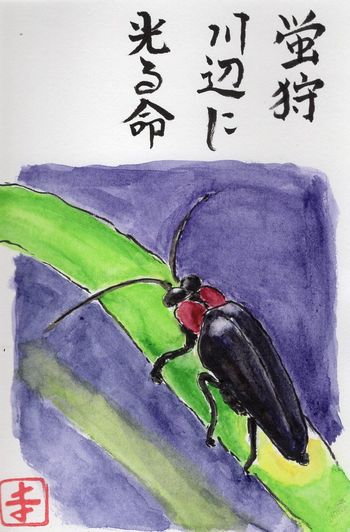 蛍狩
川辺に
光る命